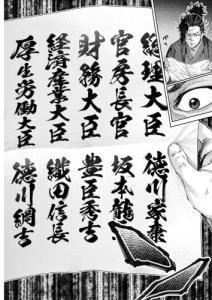 総理大臣 徳川家康
官房長官 坂本龍
財務大臣 豊臣秀吉
経済産業大臣 織田信長
厚生労働大臣 徳川綱吉